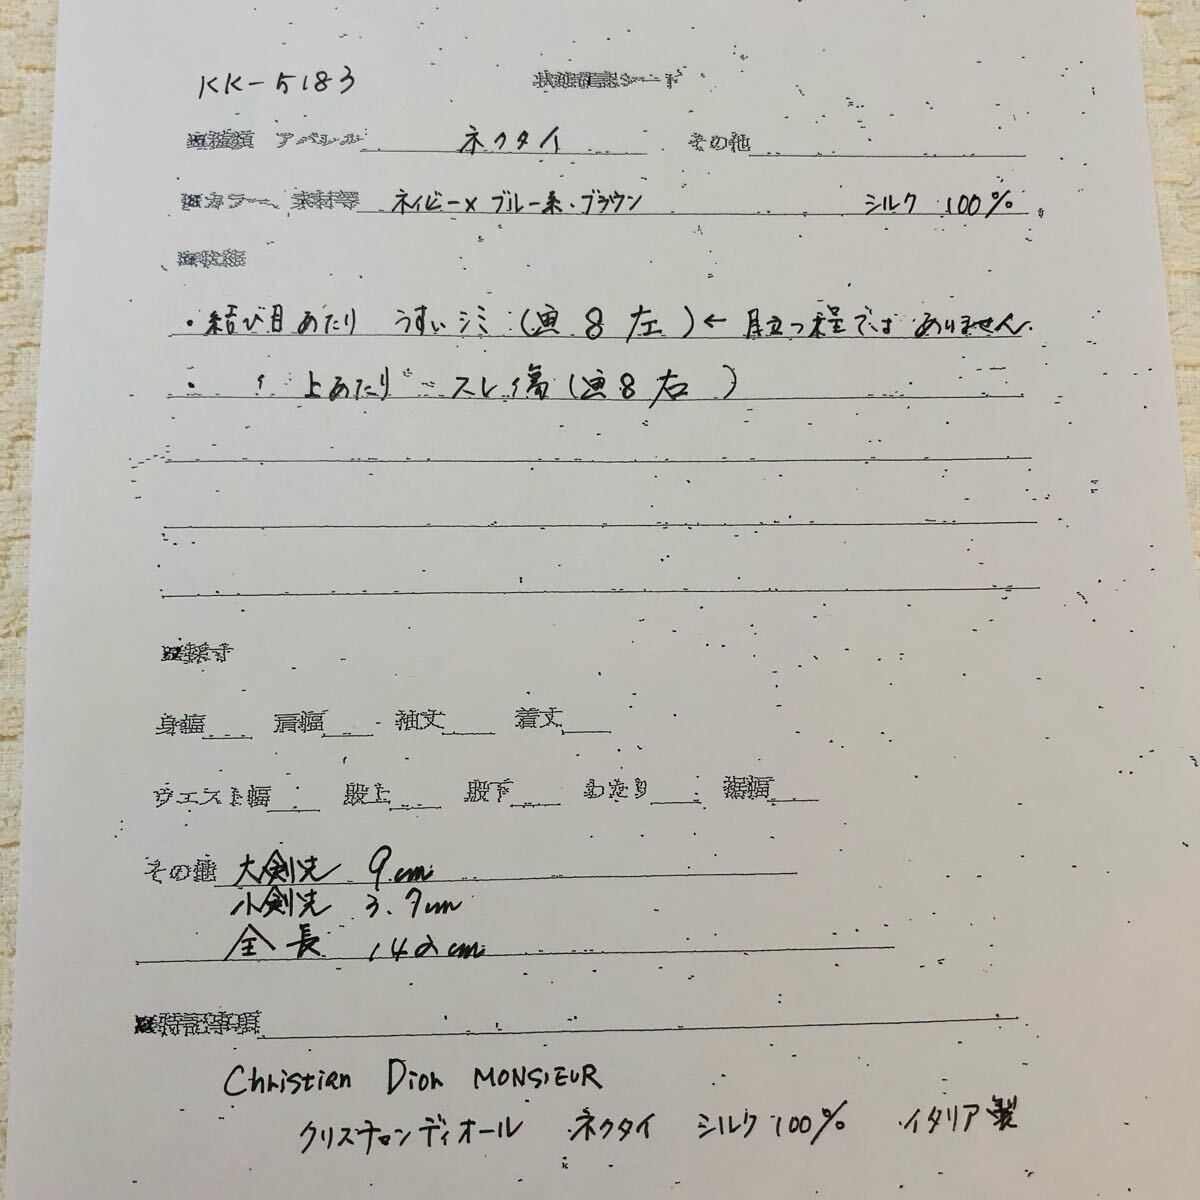 KK-5183 状態確認シート
■種類 アパレル ネクタイ その他
■カラー、素材等 ネイビー×ブルー系・ブラウン シルク 100%
■状態
・結び目あたり うすいシミ(画8左)← 目立つ程ではありません.
・ 〃 上あたり スレ傷(画8右)
■採寸
身幅 肩幅 袖丈 着丈
ウエスト幅 股上 股下 わたり 裾幅
その他 大剣先 9cm
小剣先 3.7cm
全長 142cm
■特記事項
Christian Dior MONSIEUR
クリスチャンディオール ネクタイ シルク100% イタリア製